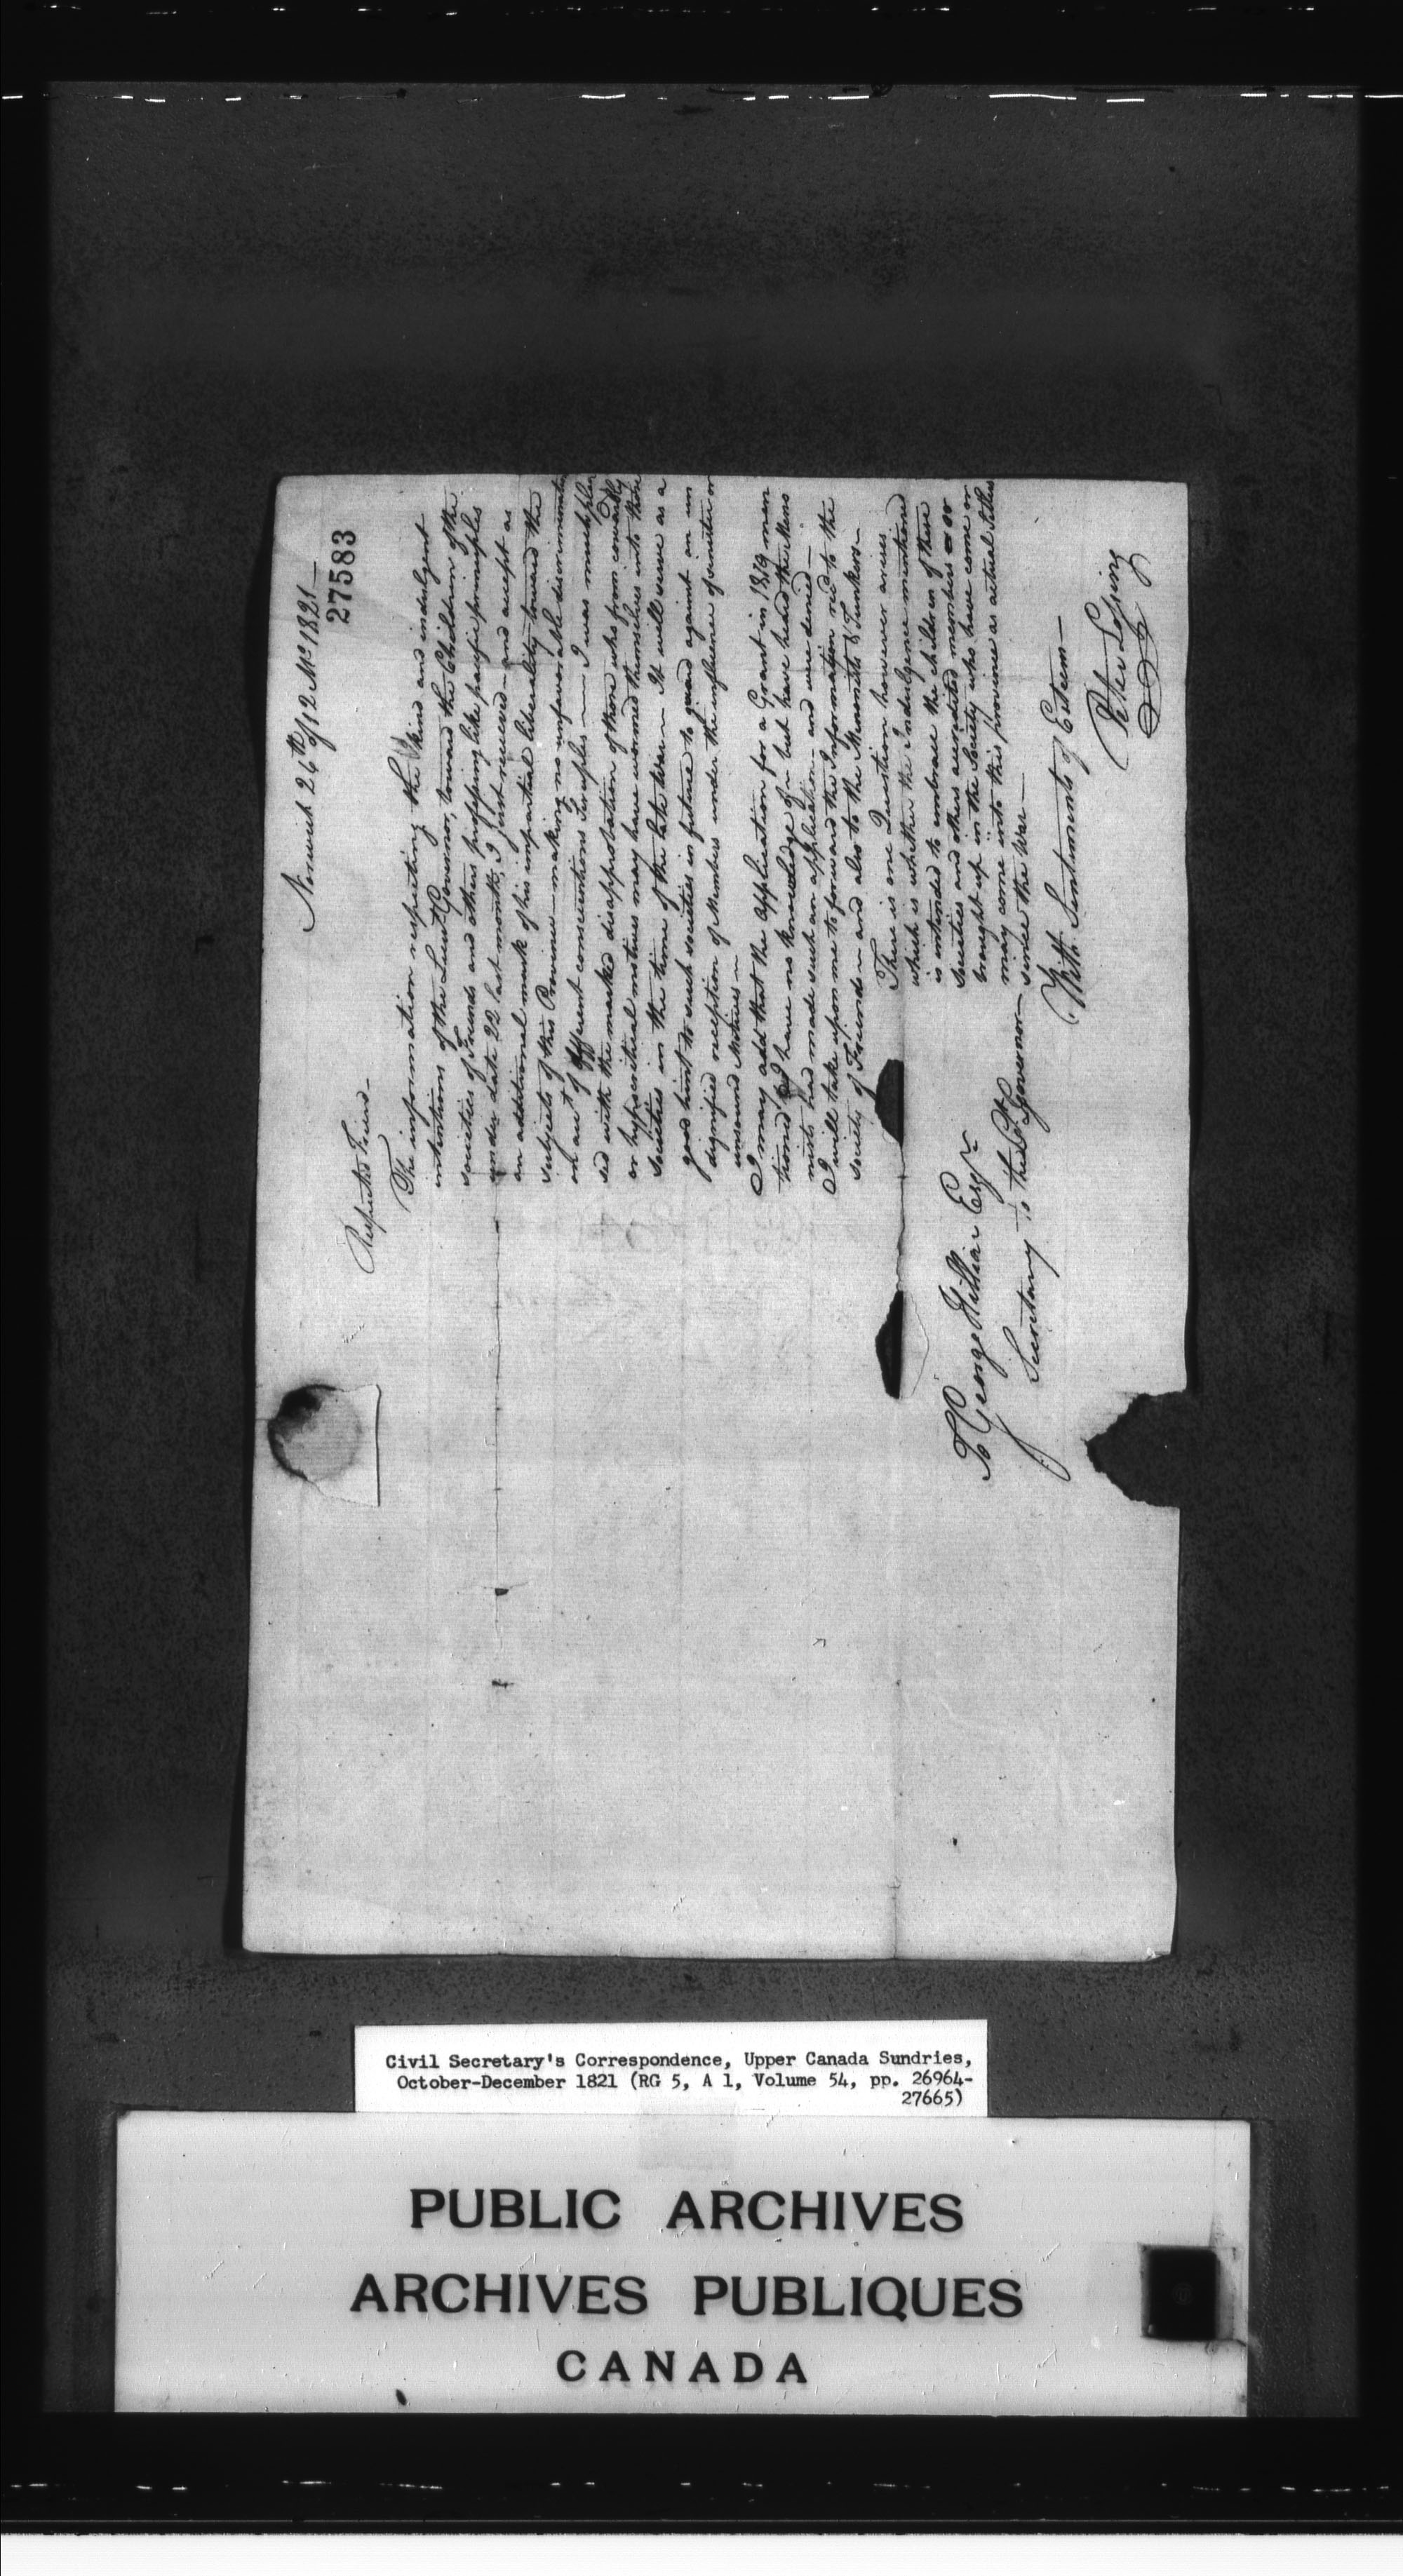 Norwich 26th of 12 Mo 1821—
27583
Respected Friend—
The information respecting the kind and indulgent
intentions of the Lieut Governor, toward the Children of the
societies of Friends and others professing like pacific principles
under date 22 last month, I just received— and accept as
an additional mark of his impartial liberality toward the
subjects of this Province— making no unfavorable discrimination
on acct of different conscientious Scruples— I was much plea
sed with the marked disapprobation of those who from cowardly
or hypocritical motives may have wormed themselves into those
societies in the time of the late War— It will serve as a
good hint to such societies in future to guard against an un
dignified reception of Members under the influence of sinister or
unsound Motives—
I may add that the application for a Grant in 1819 men
tioned I have no knowledge of— but have heard the Meno
nists had made such an application— and were denied—
I will take upon me to forward the Information red to the
society of Friends— and also to the Menonists & Tunkers—
There is one Question however arises
which is whether the Indulgence mentioned
is intended to embrace the children of these
societies and others accredited members or
brought up in the Society who have come or
may come into this province as actual Settlers
since the War—
With Sentiments of Esteem—
Peter Lossing
To George Hillier Esqr
Secretary to the Lt Governor—
Civil Secretary's Correspondence, Upper Canada Sundries,
October-December 1821 (RG 5, A 1, Volume 54, pp. 26964-
27665)
PUBLIC ARCHIVES
ARCHIVES PUBLIQUES
CANADA